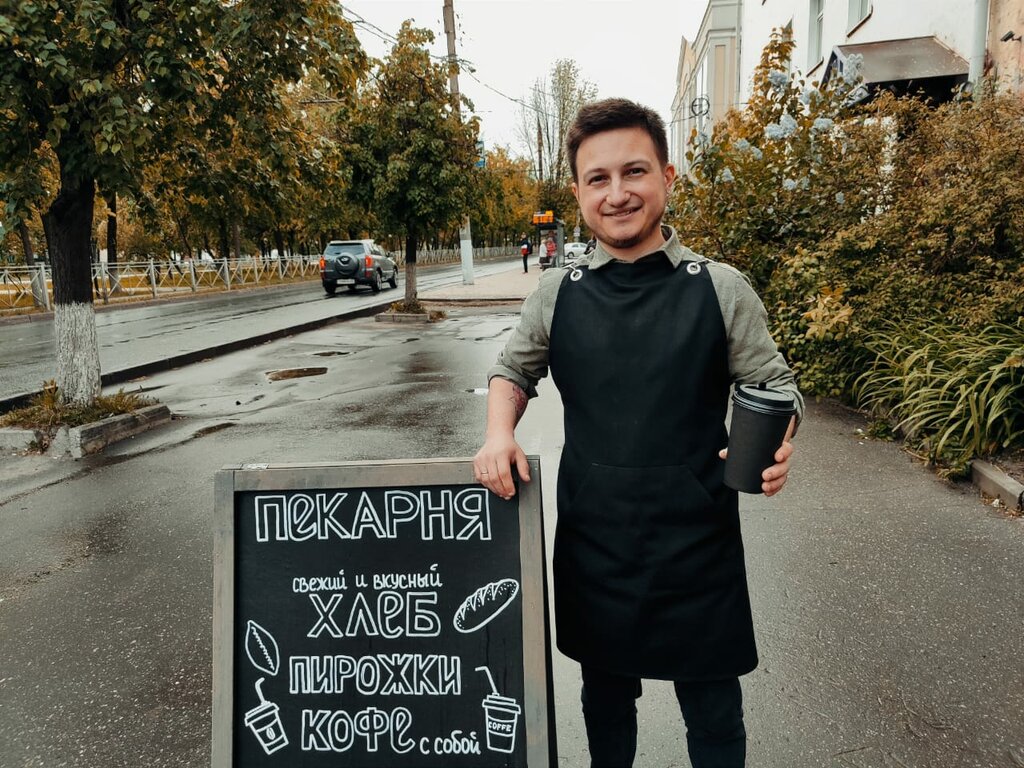 ПЕКАРНЯ
свежий и вкусный
ХЛЕБ
ПИРОЖКИ
КОФЕ с собой
COFFE